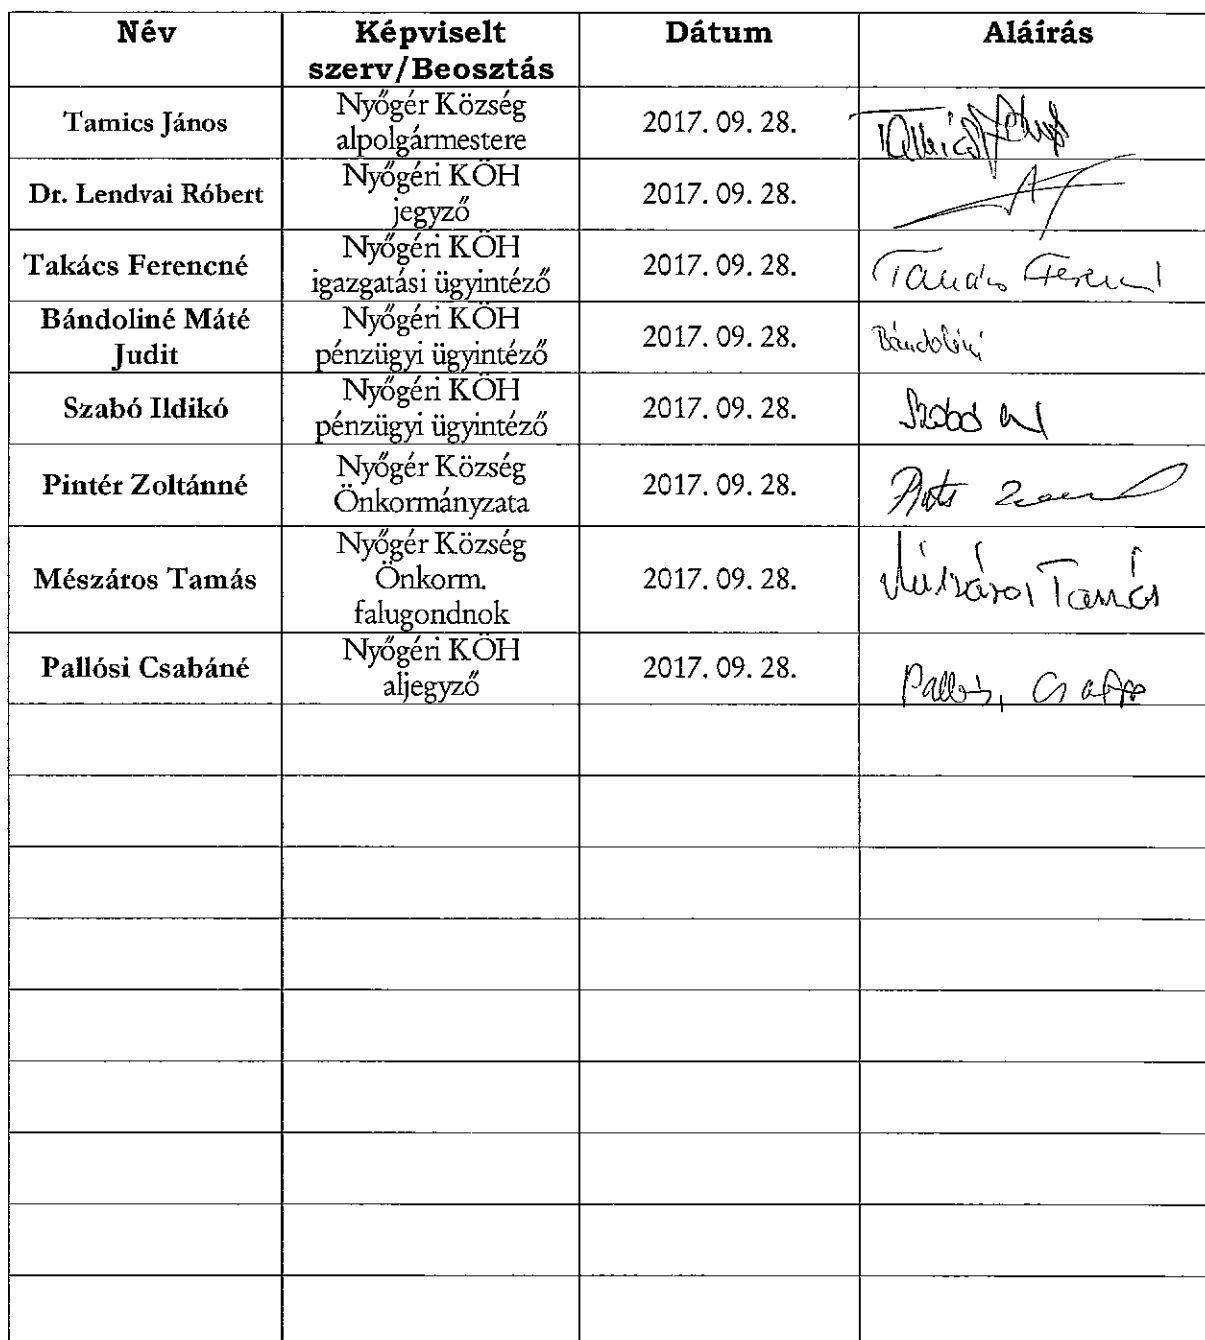 Név Képviselt szerv/Beosztás Dátum Aláírás
Tamics János Nyőgér Község alpolgármestere 2017. 09. 28. Tamics János
Dr. Lendvai Róbert Nyőgéri KÖH jegyző 2017. 09. 28.
Takács Ferencné Nyőgéri KÖH igazgatási ügyintéző 2017. 09. 28. Takács Ferencné
Bándoliné Máté Judit Nyőgéri KÖH pénzügyi ügyintéző 2017. 09. 28. Bándoliné
Szabó Ildikó Nyőgéri KÖH pénzügyi ügyintéző 2017. 09. 28. Szabó
Pintér Zoltánné Nyőgér Község Önkormányzata 2017. 09. 28.
Mészáros Tamás Nyőgér Község Önkorm. falugondnok 2017. 09. 28. Mészáros Tamás
Pallósi Csabáné Nyőgéri KÖH aljegyző 2017. 09. 28. Pallósi